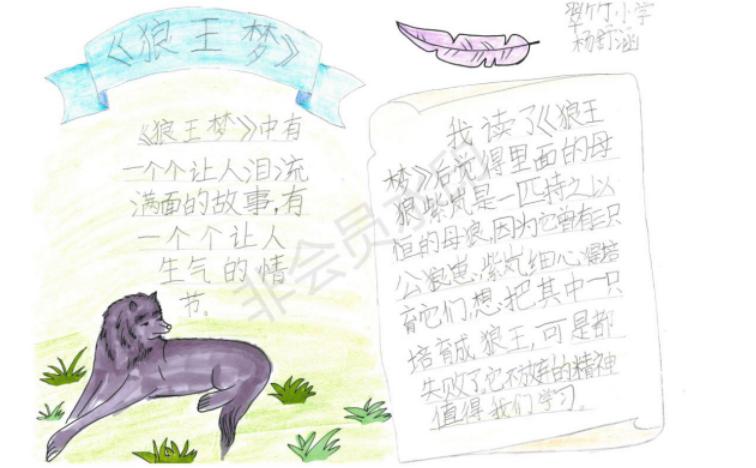 《狼王梦》
翠竹小学
杨舒涵
《狼王梦》中有
一个个让人泪流
满面的故事,有
一个个让人
生气的情
节。
我读了《狼王
梦》后觉得里面的母
狼紫岚是一匹持之以
恒的母狼,因为它曾有三只
公狼崽,紫岚细心得培
育它们,想把其中一只
培育成狼王,可是都
失败了,它不放弃的精神
值得我们学习。
非会员水印